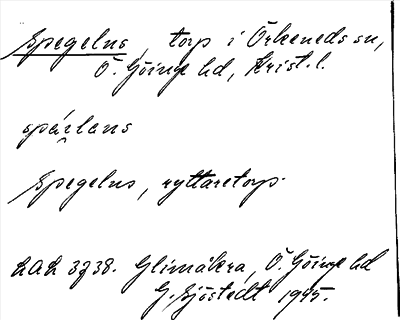 Spegelns, torp i Örkeneds sn,
Ö. Göinge hd, Krist. l.
spärlens
Spegelns, ryttaretorp.
LAL 3738. Glimåkra, Ö. Göinge hd
G. Sjöstedt 1945.